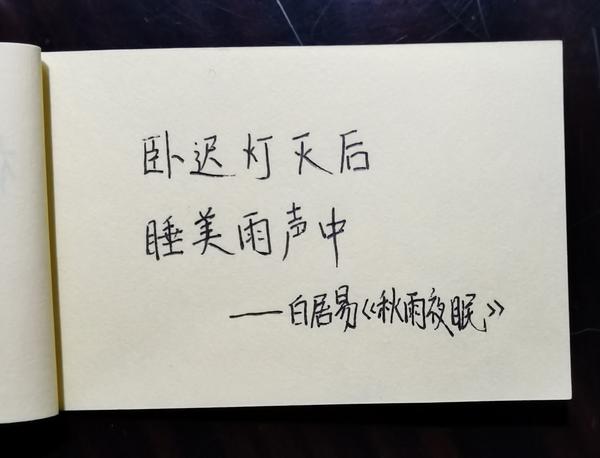 卧迟灯灭后
睡美雨声中
——白居易《秋雨夜眠》